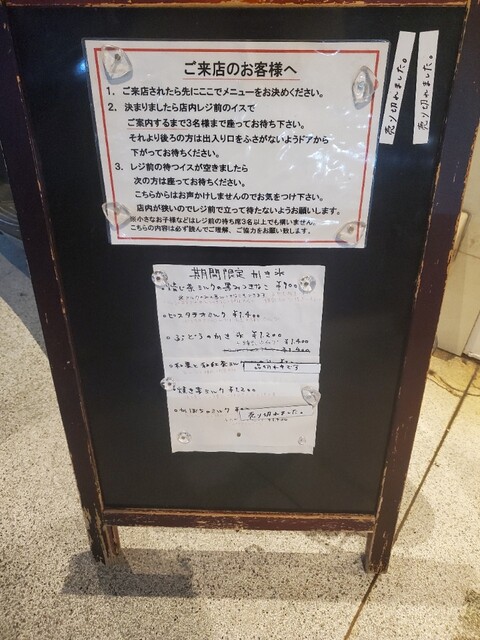 ご来店のお客様へ
1. ご来店されたら先にここでメニューをお決めください。
2. 決まりましたら店内レジ前のイスで
ご案内するまで3名様まで座ってお待ち下さい。
それより後ろの方は出入り口をふさがないようドアから
下がってお待ちください。
3. レジ前の待つイスが空きましたら
次の方は座ってお待ちください。
こちらからはお声かけしませんのでお気をつけ下さい。
店内が狭いのでレジ前で立って待たないようお願いします。
※小さなお子様などはレジ前の待ち席3名以上でも構いません。
こちらの内容は必ず読んでご理解、ご協力をお願い致します。
売り切れました。
売り切れました。
期間限定 かき氷
ミルクの黒みつきなこ ¥900
・ピスタチオミルク ¥1.400
・ぶどうのかき氷 ¥1.200
¥1.400
・焼き芋ミルク ¥1.200
・かぼちゃミルク
売り切れました。